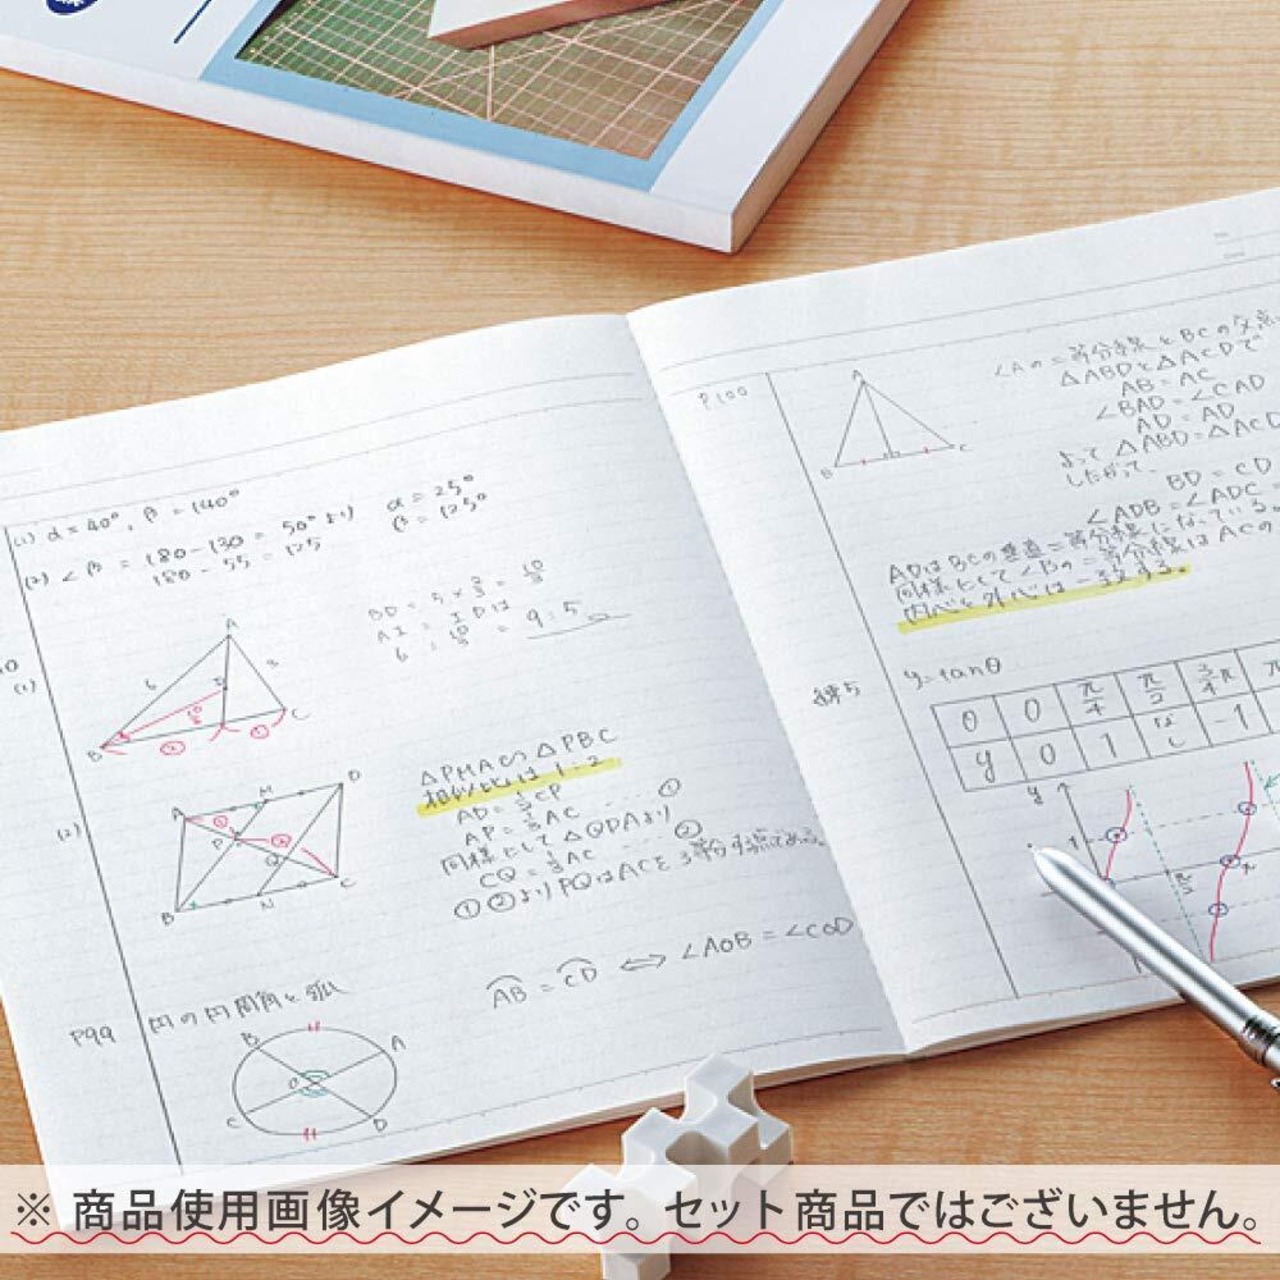 (1) α = 40°, β = 140°
(2) ∠β = 180 - 130 = 50° より
180 - 55 = 125
α = 25°
β = 125°
(1)
A
6
3
I
B
C
②
①
10/3
6 : 10/3 = 9:5
(2)
A
M
D
P
Q
B
N
C
①
②
△PMA ∽ △PBC
相似比は 1:2
AP = 1/3 AC ‥‥ ①
同様にして △QDAより
CQ = 1/3 AC ‥‥ ②
①②より PQはACを3等分する点である。
P99
円の円周角と弧
B
A
O
C
D
AB = CD ⇔ ∠AOB = ∠COD
P100
A
B
C
∠Aの二等分線とBCの交点
△ABDと△ACDで
AB = AC
∠BAD = ∠CAD
AD = AD
よって △ABD = △ACD
したがって、
BD = CD
∠ADB = ∠ADC =
ADはBCの垂直二等分線になっている。
同様にして∠Bの二等分線はACの
内心と外心は一致する。
y = tanθ
θ 0 π/4 π/2 3/4π π
y 0 1 なし -1
y
1
π/2
π
※ 商品使用画像イメージです。セット商品ではございません。